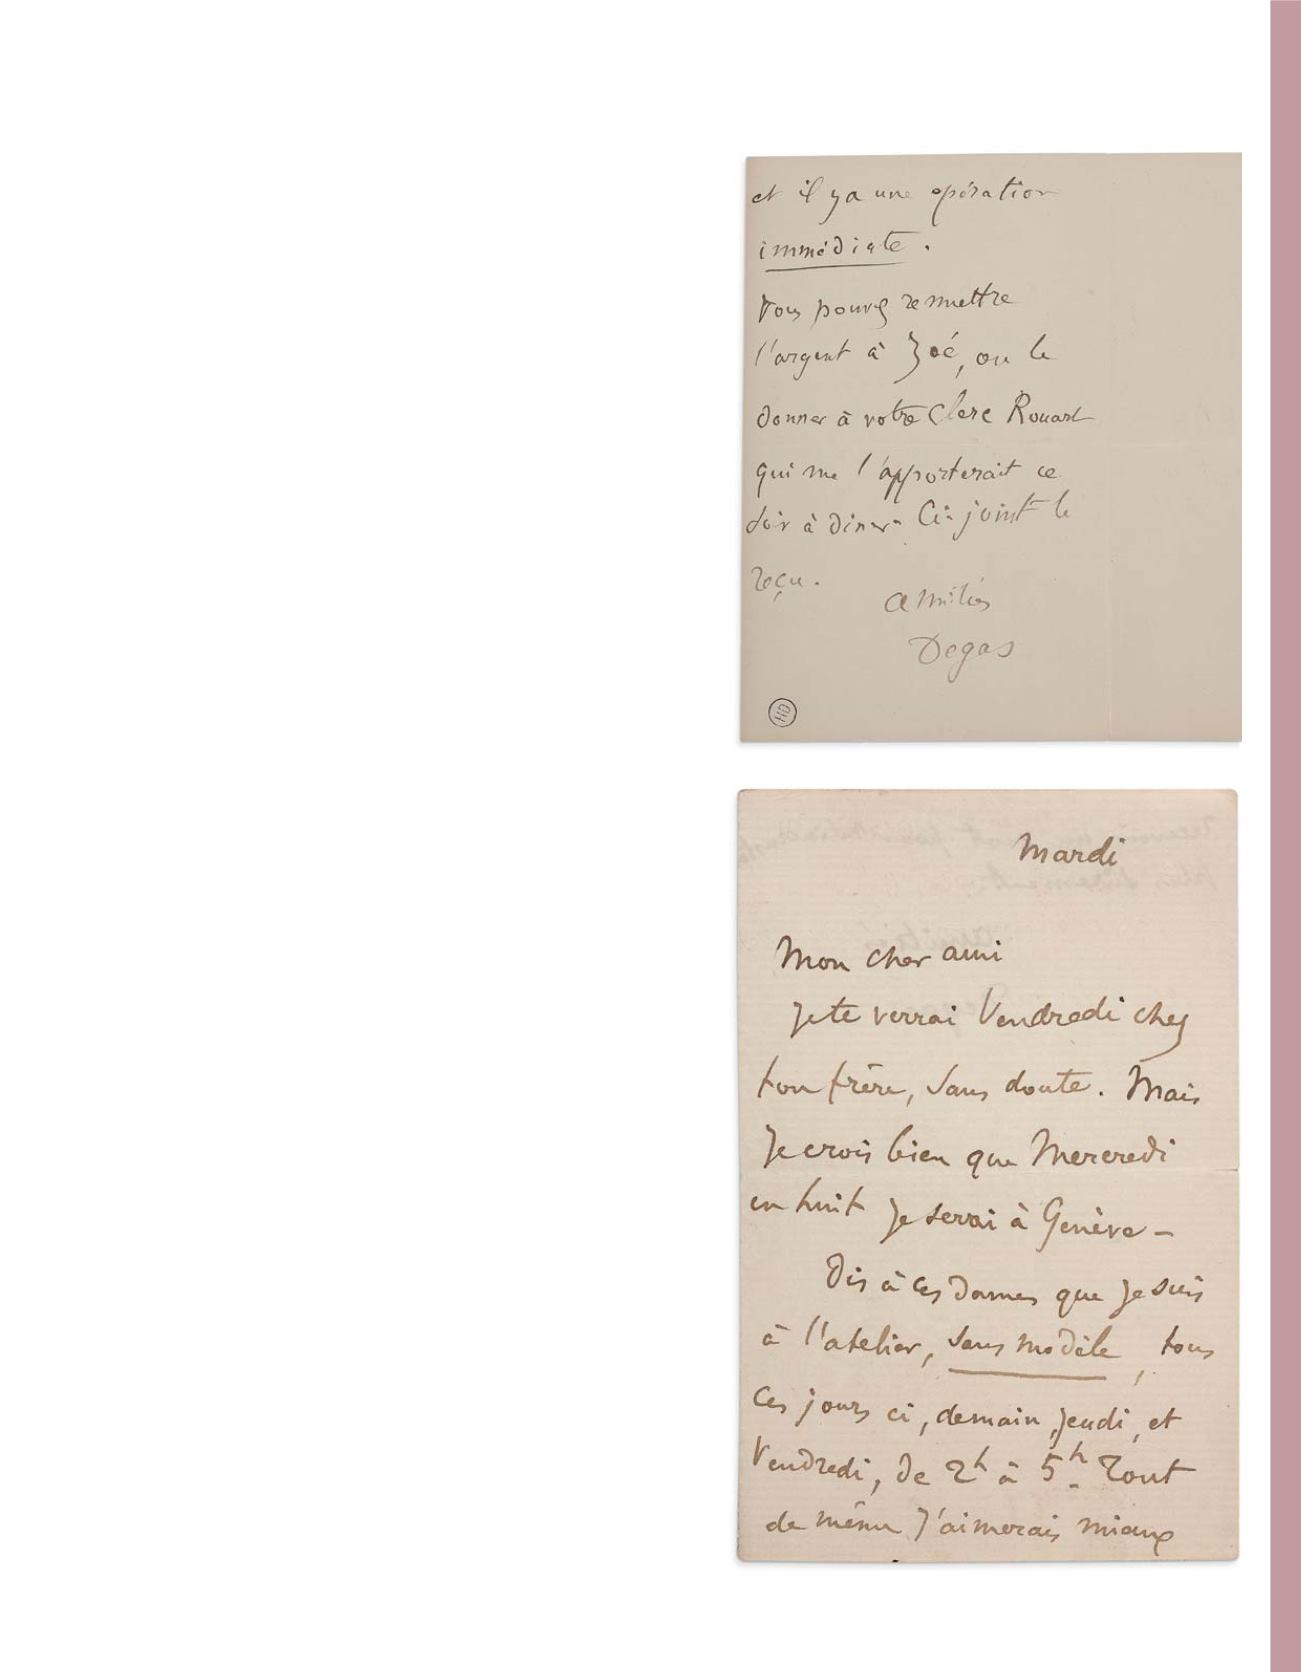 et il y a une opération
immédiate.
Vous pouvez remettre
l'argent à Zoé, ou le
donner à votre clerc Rouart
qui me l'apporterait ce
soir à diner - Ci-joint le
reçu.
Amitiés
Degas
HD
Mardi
Mon cher ami
Je te verrai Vendredi chez
ton frère, sans doute. Mais
je crois bien que Mercredi
en huit je serai à Genève -
Dis à ces Dames que je suis
à l'atelier, sans modèle, tous
ces jours ci, demain, jeudi, et
Vendredi, de 2h à 5h. Tout
de même j'aimerais mieux